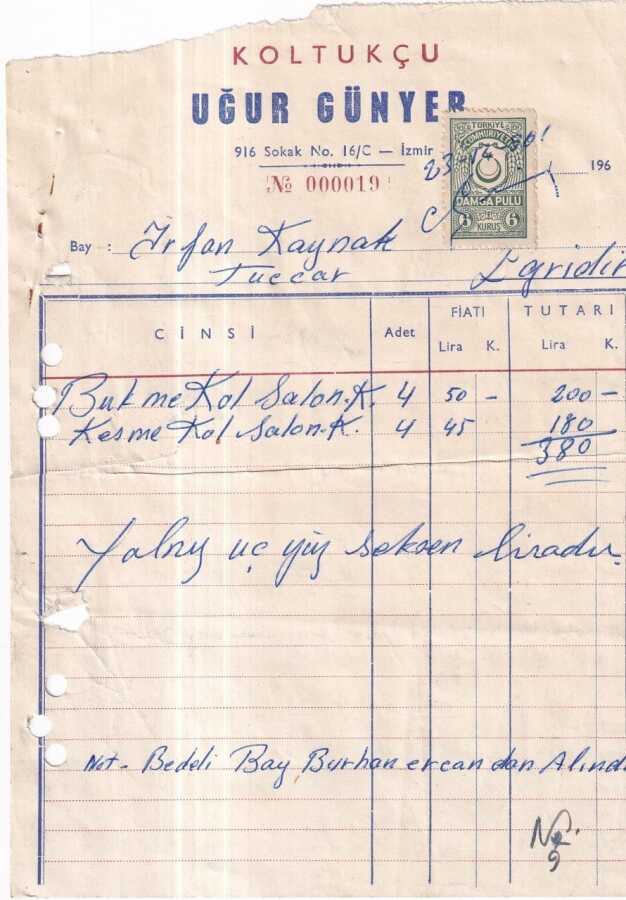 KOLTUKÇU
UĞUR GÜNYER
916 Sokak No. 16/C — İzmir
№ 000019
TÜRKİYE
CUMHURİYETİ
DAMGA PULU
6 KURUŞ 6
196
Bay : İrfan Kaynak
Tüccar Egridir
CİNSİ Adet FİATI TUTARI
Lira K. Lira K.
Bükme Kol Salon.K. 4 50 - 200 -
Kesme Kol Salon.K. 4 45 180
380
Yalnız üç yüz seksen liradır.
Not - Bedeli Bay Burhan ercan dan Alınd